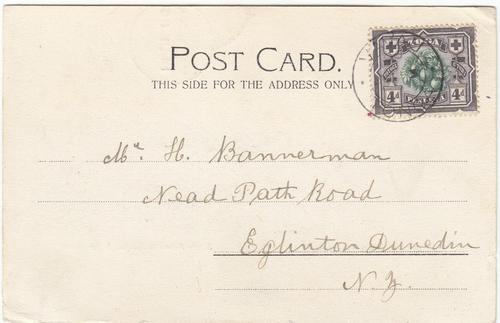 TONGA
4d 4d
POST CARD.
THIS SIDE FOR THE ADDRESS ONLY
Mr. H. Bannerman
Nead Path Road
Eglinton Dunedin
N.Z.